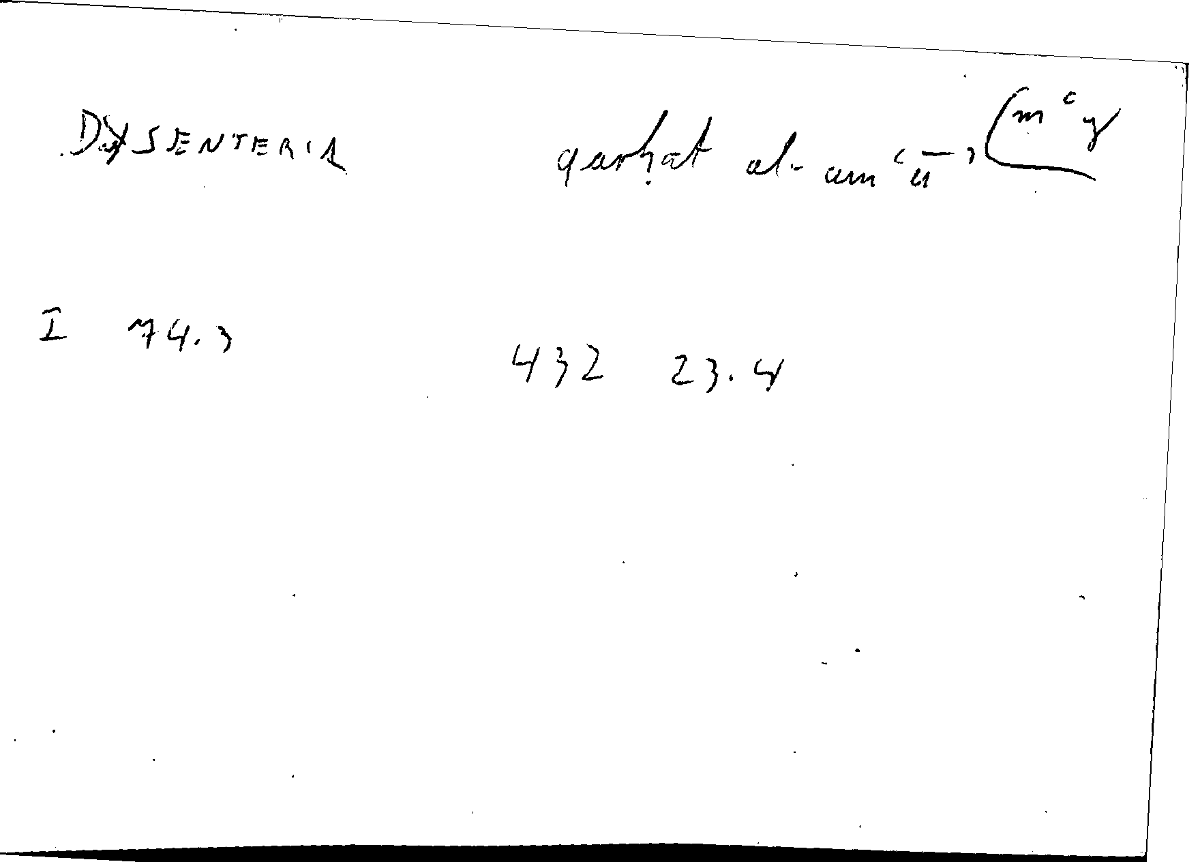 DYSENTERIA qarḥat al-amʿāʾ (mʿy
I 74.3 432 23.4